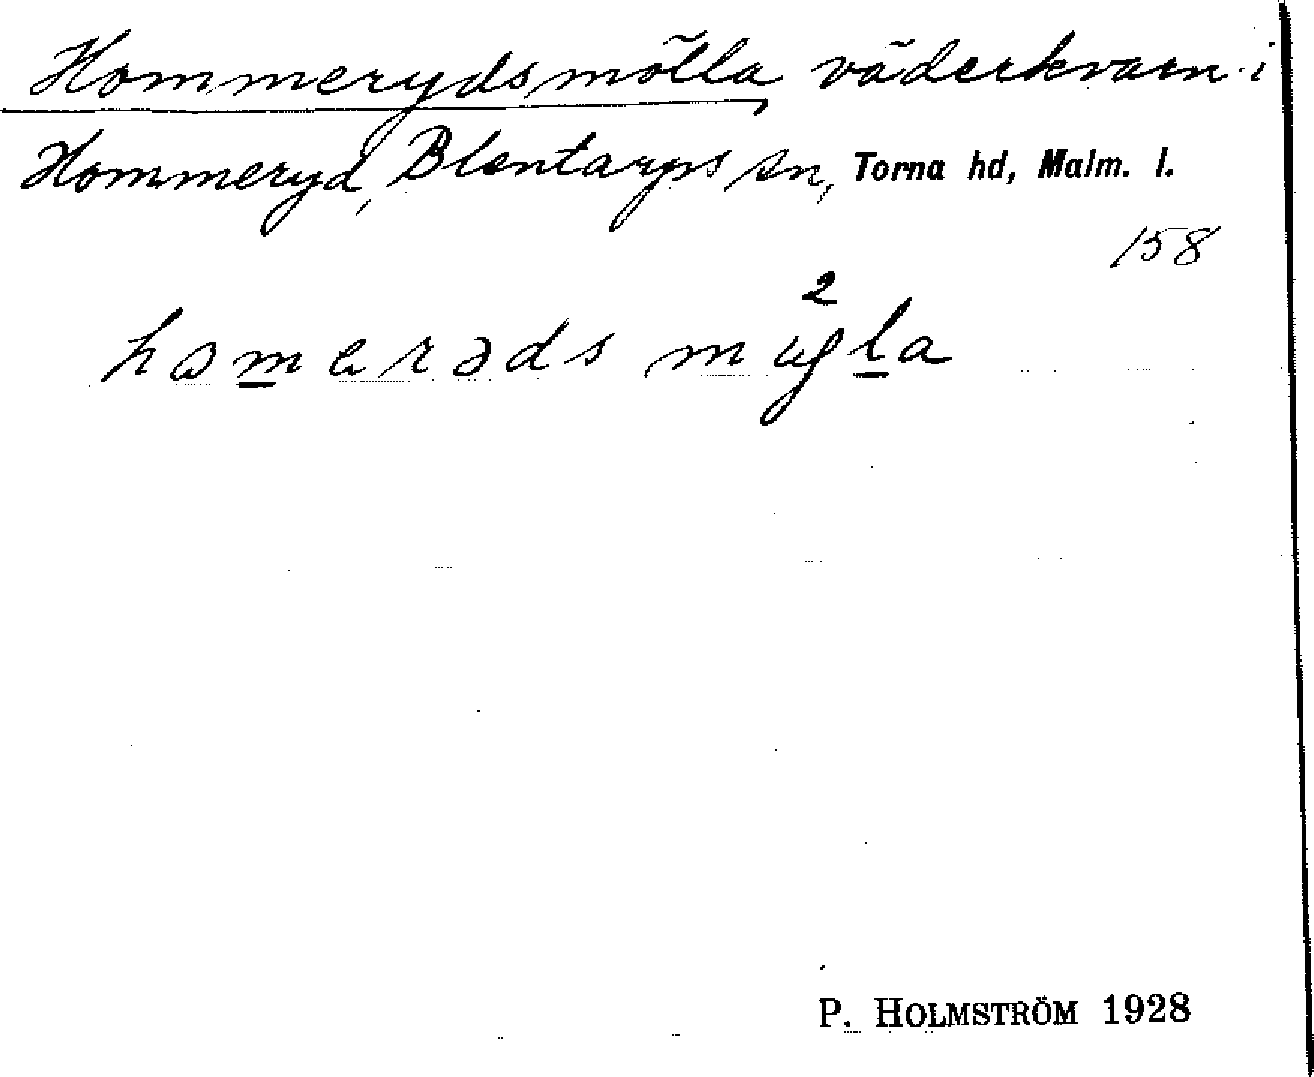 Hommerydsmölla, väderkvarn i
Hommeryd, Blentarps sn, Torna hd, Malm. l.
158
P. HOLMSTRÖM 1928